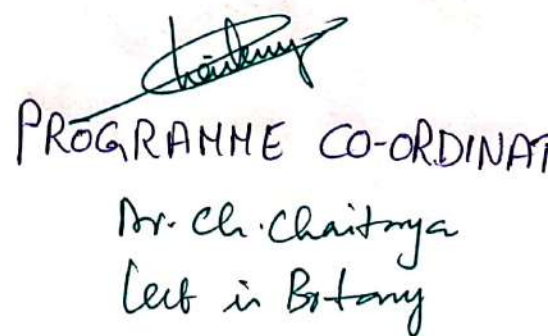 PROGRAMME CO-ORDINAT
Dr. Ch. Chaitanya
Lect in Botany